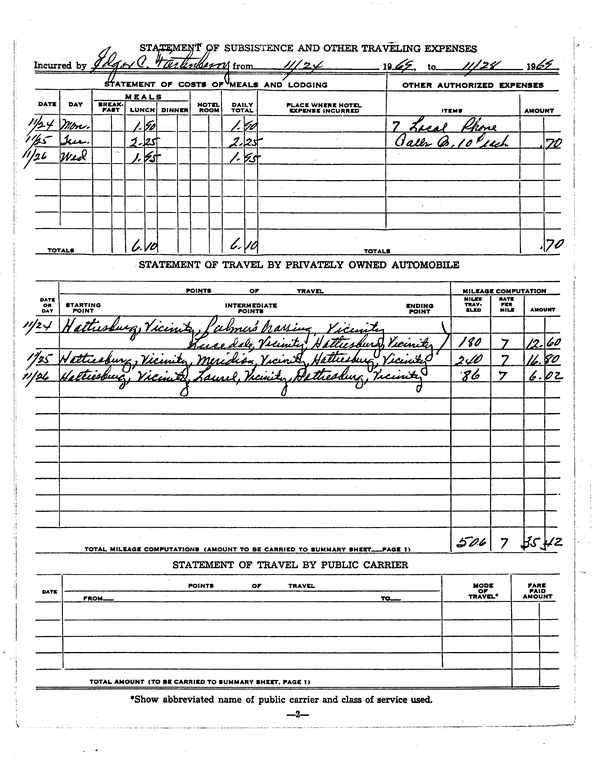 STATEMENT OF SUBSISTENCE AND OTHER TRAVELING EXPENSES
Incurred by Edgar C. from 11/24 1969, to 11/28 1969
STATEMENT OF COSTS OF MEALS AND LODGING OTHER AUTHORIZED EXPENSES
DATE DAY MEALS BREAK-FAST LUNCH DINNER HOTEL ROOM DAILY TOTAL PLACE WHERE HOTEL EXPENSE INCURRED ITEMS AMOUNT
11/24 Mon. 1.90 1.90 7 Local Phone
11/25 Tue. 2.25 2.25 Calls @ 10¢ each .70
11/26 Wed 1.95 1.95
TOTALS 6.10 6.10 TOTALS .70
STATEMENT OF TRAVEL BY PRIVATELY OWNED AUTOMOBILE
POINTS OF TRAVEL MILEAGE COMPUTATION
DATE OR DAY STARTING POINT INTERMEDIATE POINTS ENDING POINT MILES TRAV-ELED RATE PER MILE AMOUNT
11/24 Hattiesburg, Vicinity, Palmers Crossing, Vicinity
Vicinity, Hattiesburg, Vicinity 180 7 12.60
11/25 Hattiesburg, Vicinity, Meridian, Vicinity, Hattiesburg, Vicinity 240 7 16.80
11/26 Hattiesburg, Vicinity, Laurel, Vicinity, Hattiesburg, Vicinity 86 7 6.02
TOTAL MILEAGE COMPUTATIONS (AMOUNT TO BE CARRIED TO SUMMARY SHEET—PAGE 1) 506 7 35.42
STATEMENT OF TRAVEL BY PUBLIC CARRIER
DATE POINTS OF TRAVEL MODE OF TRAVEL* FARE PAID AMOUNT
FROM— TO—
TOTAL AMOUNT (TO BE CARRIED TO SUMMARY SHEET. PAGE 1)
*Show abbreviated name of public carrier and class of service used.
—2—